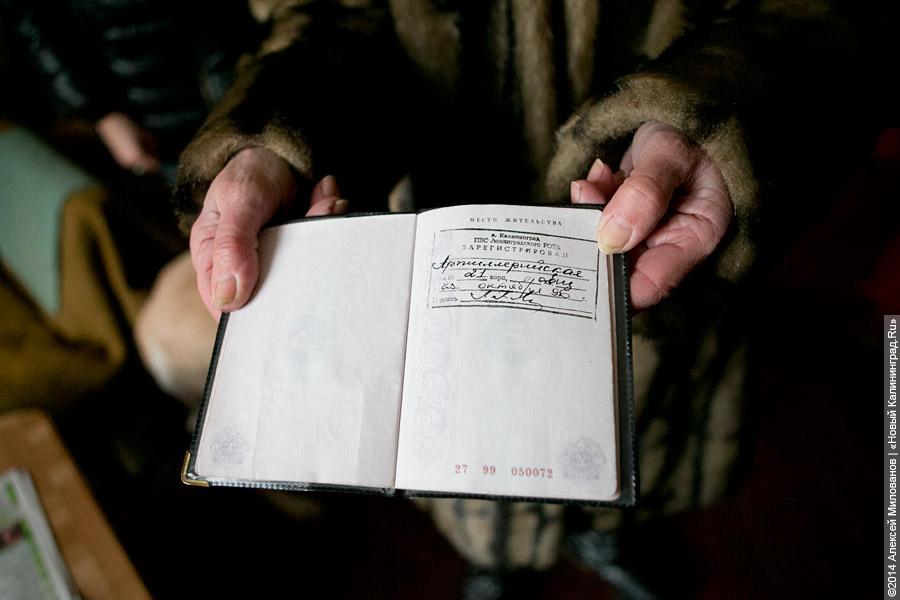 МЕСТО ЖИТЕЛЬСТВА
г. Калининград
ПВС Ленинградского РОВД
ЗАРЕГИСТРИРОВАН
Артиллерийская
21 корп.
октября
Подпись г.
27 99 050072
©2014 Алексей Милованов | «Новый Калининград.Ru»